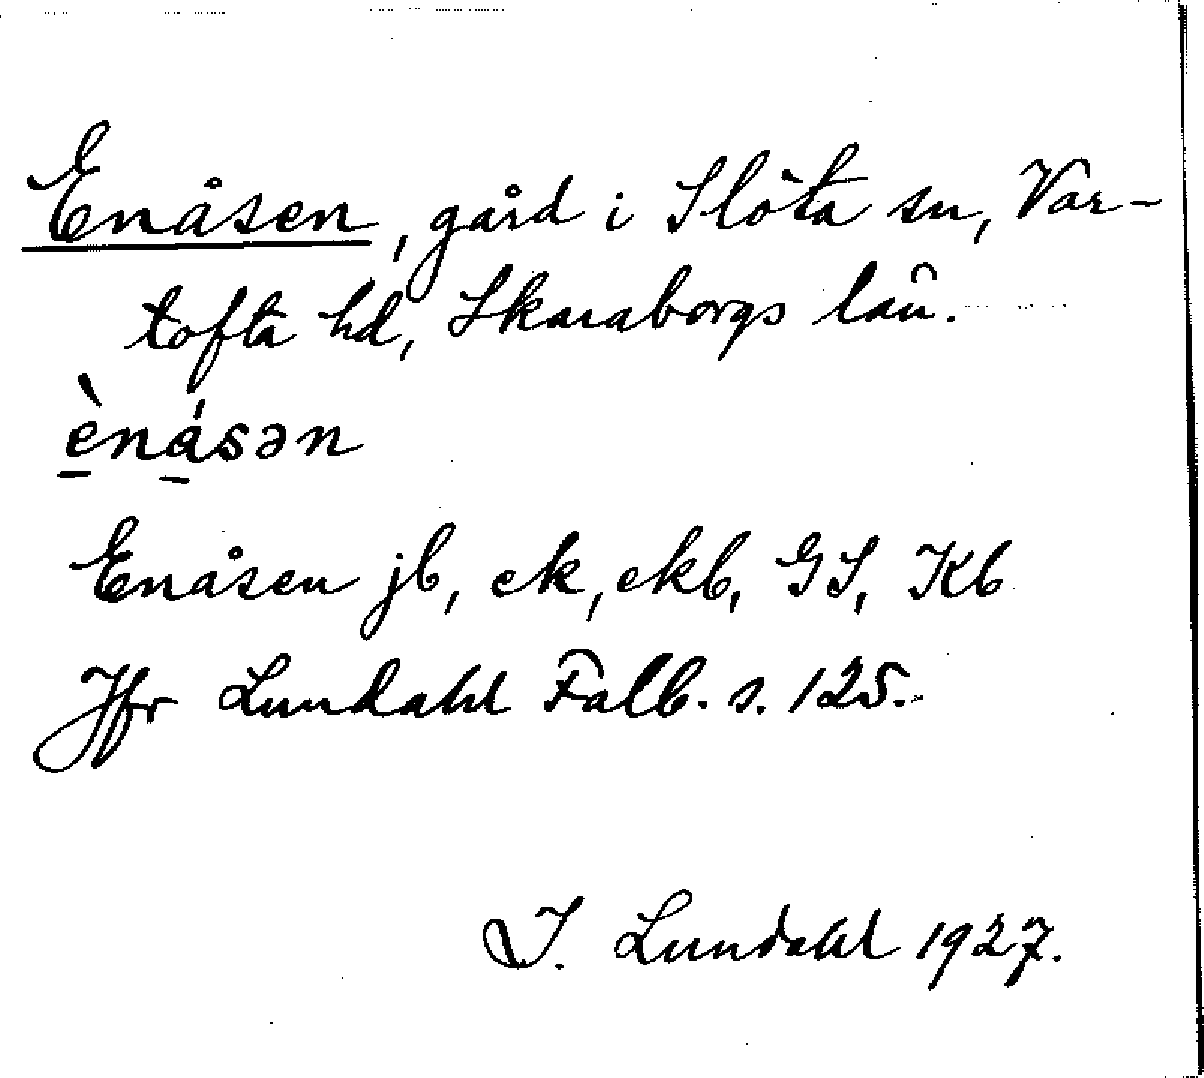 Enåsen, gård i Slöta sn, Var-
tofta hd, Skaraborgs län.
è̱ná̱sən
Enåsen jb, ek, ekb, GS, Kb
Jfr Lundahl Falb. s. 125.
I. Lundahl 1927.